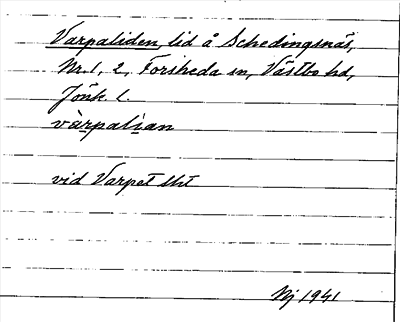 Varpaliden, lid å Schedingsnäs,
Nr. 1, 2, Forsheda sn, Västbo hd,
Jönk. l.
vàrpalian
vid Varpet
Nj 1941